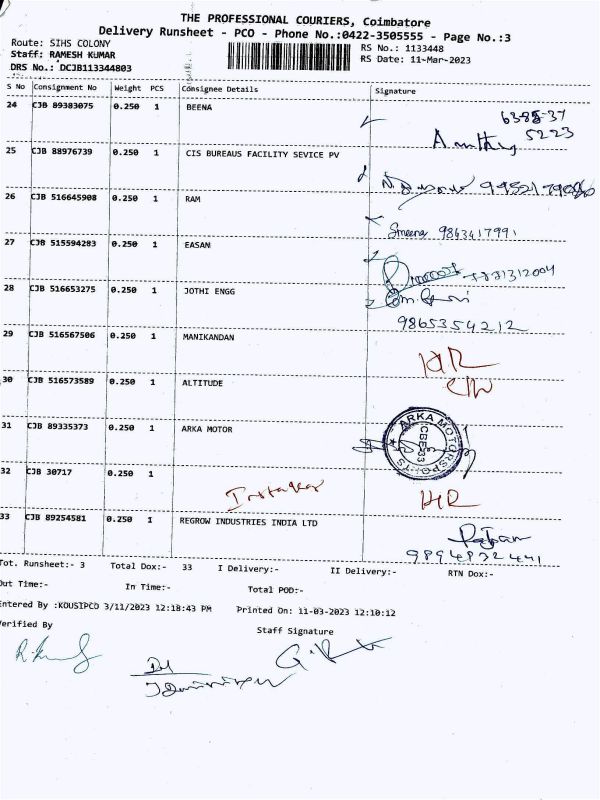 THE PROFESSIONAL COURIERS, Coimbatore
Delivery Runsheet - PCO - Phone No.:0422-3505555 - Page No.:3
Route: SIHS COLONY
RS No.: 1133448
Staff: RAMESH KUMAR
RS Date: 11-Mar-2023
DRS No.: DCJB113344803
S No Consignment No Weight PCS Consignee Details Signature
24 CJB 89383075 0.250 1 BEENA
5223
25 CJB 88976739 0.250 1 CIS BUREAUS FACILITY SEVICE PV
26 CJB 516645908 0.250 1 RAM
Smeena 9843417991
27 CJB 515594283 0.250 1 EASAN
28 CJB 516653275 0.250 1 JOTHI ENGG
9865354212
29 CJB 516567506 0.250 1 MANIKANDAN
30 CJB 516573589 0.250 1 ALTITUDE
31 CJB 89335373 0.250 1 ARKA MOTOR
ARKA MOTORSPORTS
CBE-33
32 CJB 30717 0.250 1
33 CJB 89254581 0.250 1 REGROW INDUSTRIES INDIA LTD
9894832441
Tot. Runsheet:- 3 Total Dox:- 33 I Delivery:- II Delivery:- RTN Dox:-
Out Time:- In Time:- Total POD:-
Entered By :KOUSIPCO 3/11/2023 12:18:43 PM Printed On: 11-03-2023 12:10:12
Verified By
Staff Signature